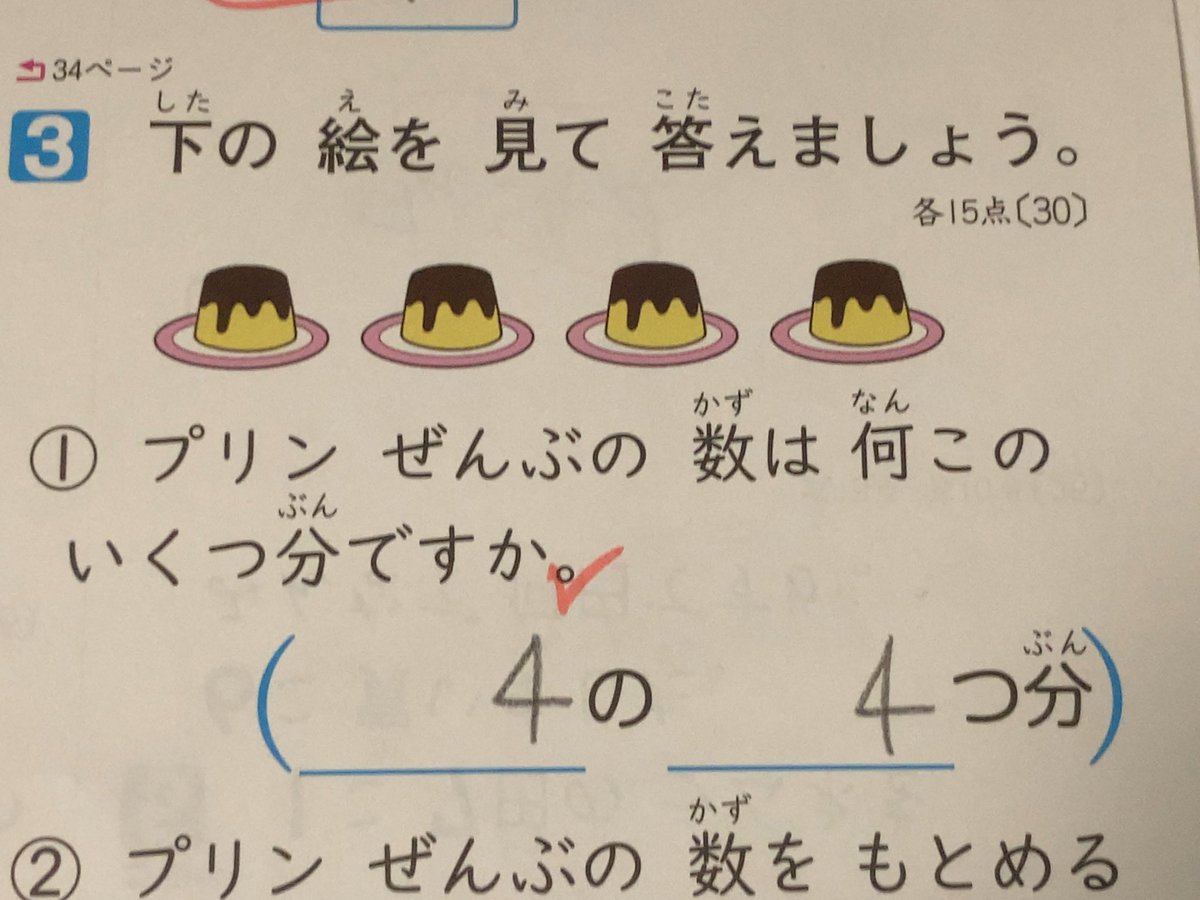 34ページ
3 下の 絵を 見て 答えましょう。
した え み こた
各15点〔30〕
① プリン ぜんぶの 数は 何この
かず なん
いくつ分ですか。
ぶん
( 4の 4つ分)
ぶん
② プリン ぜんぶの 数を もとめる
かず